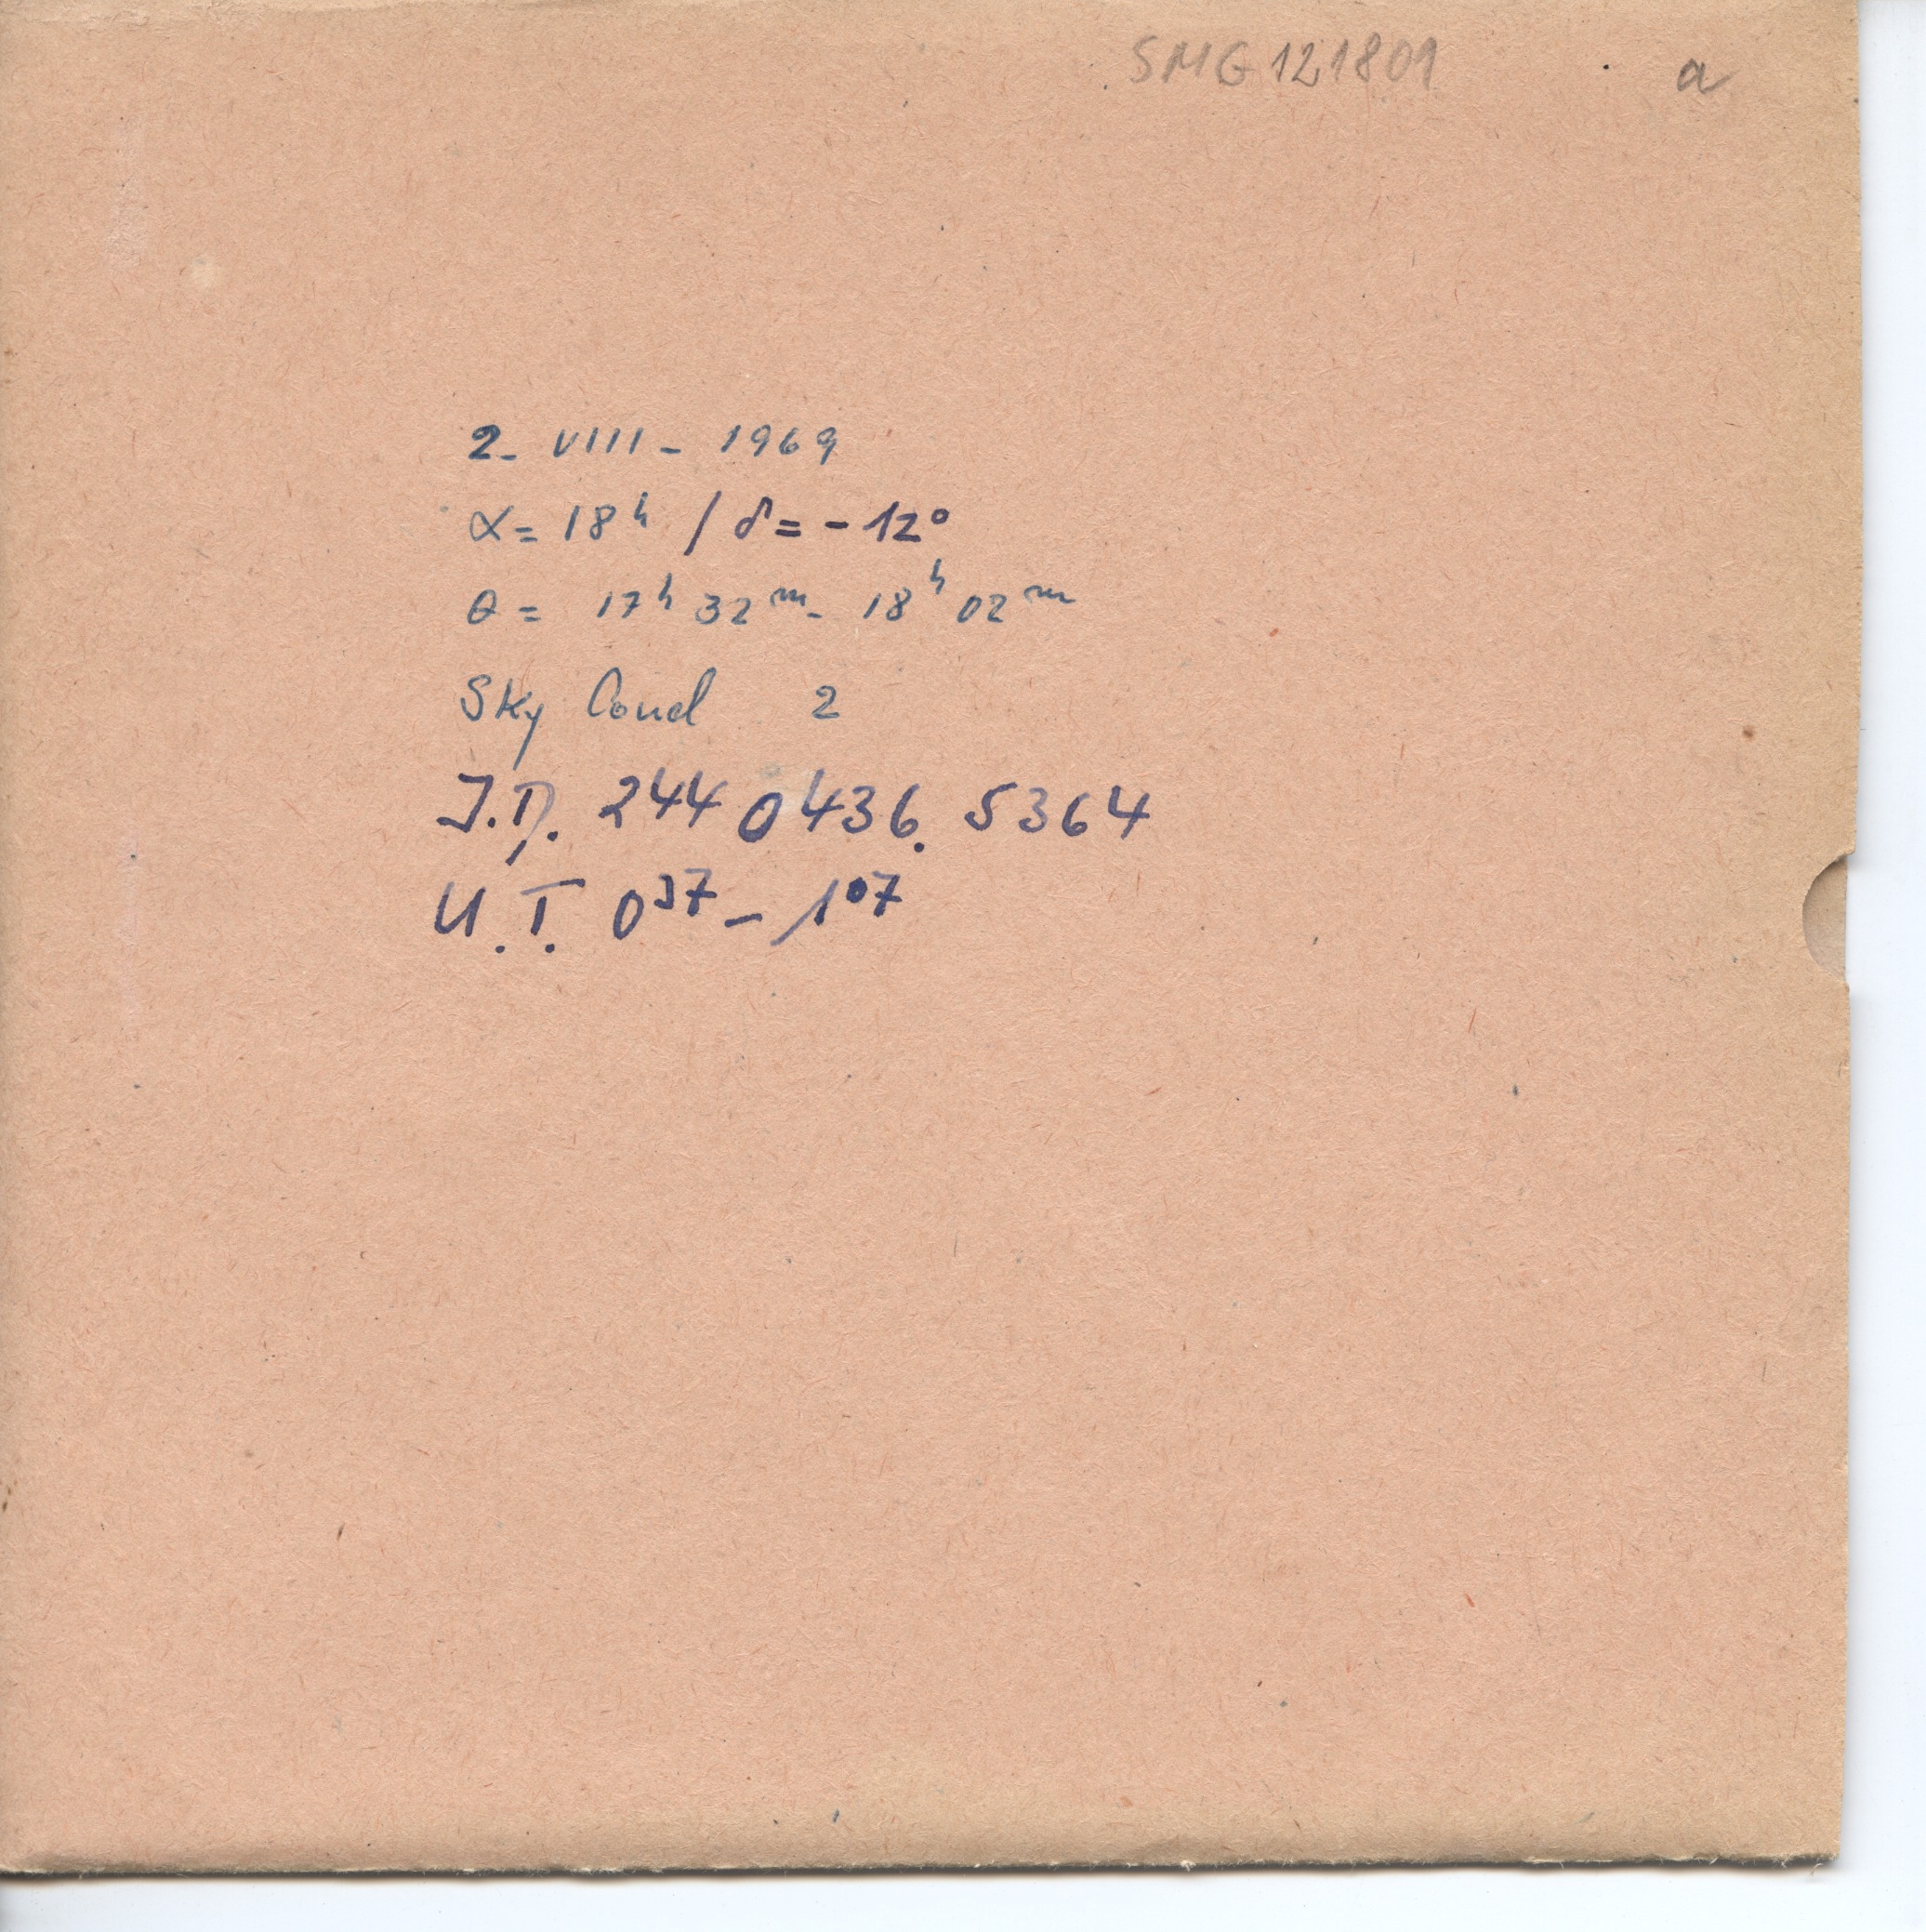 SMG 121801 a
2- VIII - 1969
α = 18ʰ / δ = - 12°
θ = 17ʰ 32ᵐ - 18ʰ 02ᵐ
Sky Cond 2
J.D. 244 0436. 5364
U.T. 0³⁷ - 1⁰⁷